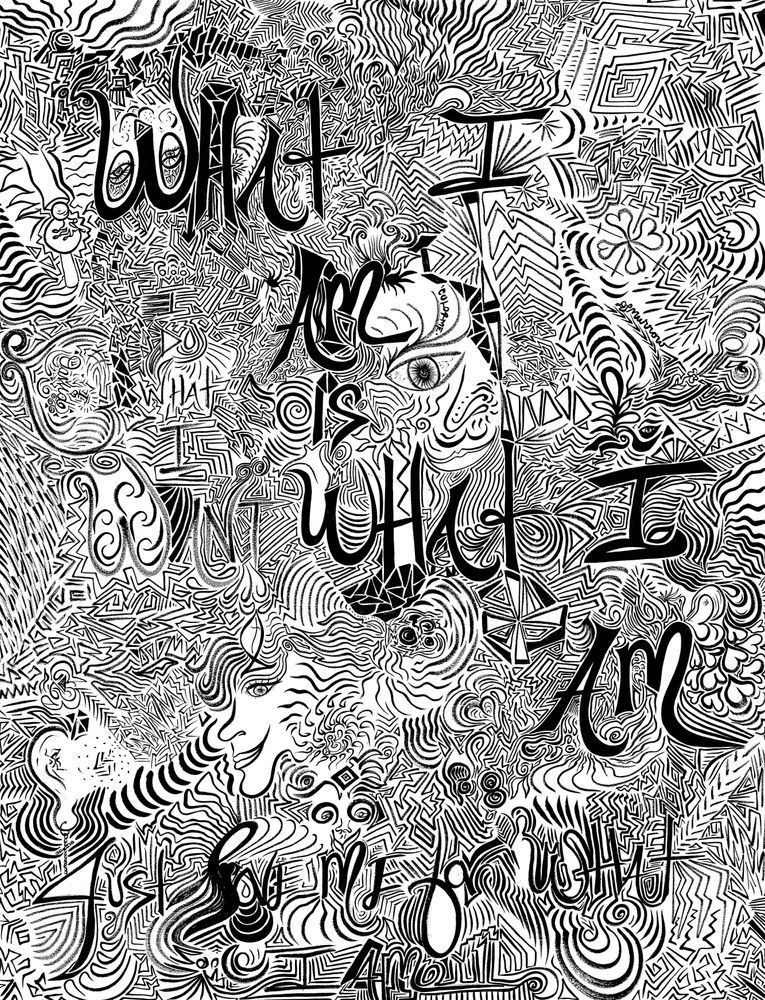 WHAt I
AM
is
WHAt I
AM
WHAt
I
WANT
Just Love Me for WHAt
I AM